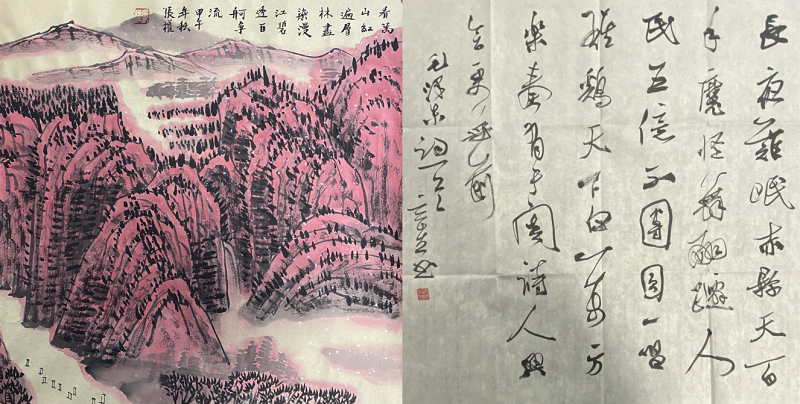 看萬
山紅
遍層
林盡
染漫
江碧
透百
舸争
流
甲午
年秋
張權
長夜難眠赤縣天百
年魔怪舞翩躚人
民五億不團圓一唱
雄鷄天下白万方
樂奏有于闐詩人興
会更無前
毛澤東詞一首